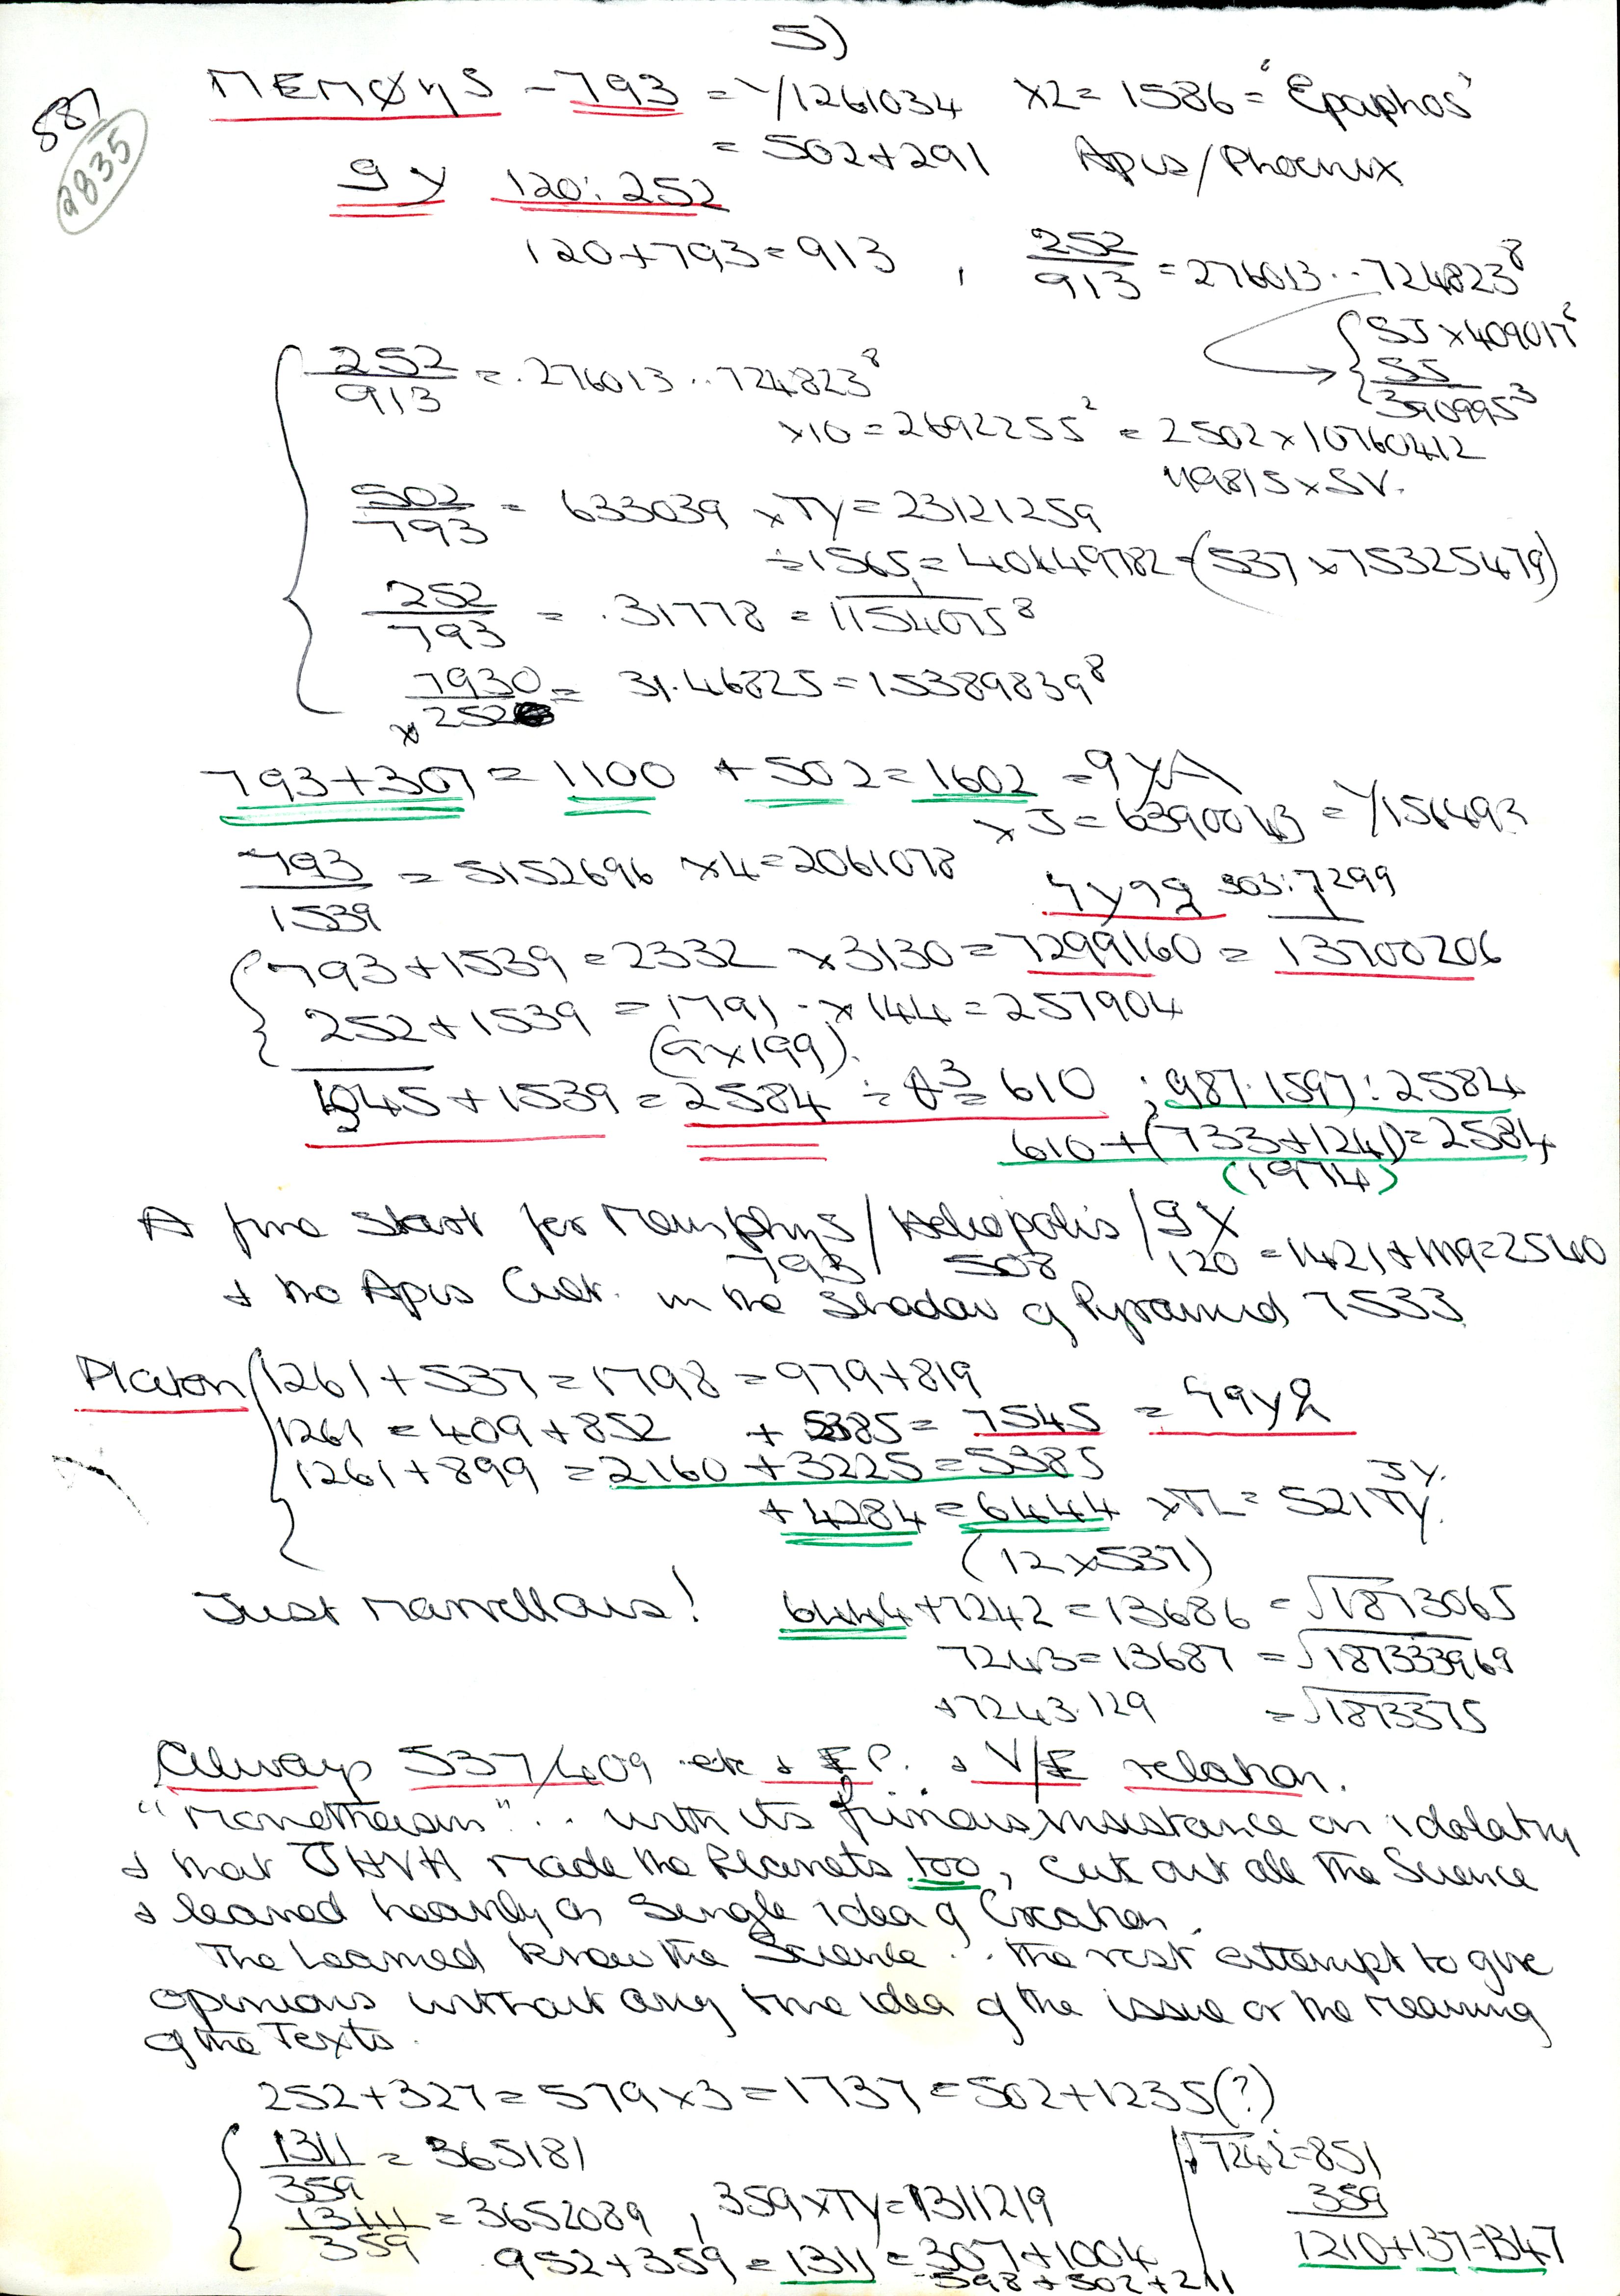 5)
887
2835
MEMØηS - 793 = 1/1261034 x2 = 1586 = 'Epaphos'
= 502+291 Apis/Phoenix
120:252
120+793=913 , 252/913 = 276013..724823⁸
SJ x 409017²
SS/390995³
252/913 = .276013..724823⁸
x10 = 2692255² = 2502 x 10760412
119815 x SV.
502/793 = 633039 x TY = 23121259
÷1565 = 40449782 = (537 x 75325479)
252/793 = .31778 = 1154075⁸
7930/252 = 31.46825 = 15389839⁸
793+307 = 1100 + 502 = 1602
x J = 6390043 = 1/156493
793/1539 = 5152696 x4 = 2061078
303:7299
793+1539 = 2332 x3130 = 7299160 = 13700206
252+1539 = 1791 . x144 = 257904
(9x199).
1045+1539 = 2584 ÷ θ³ = 610 ; 987.1597:2584
610+(733+1241)=2584
(1974)
A fine start for Memphys/Heliopolis/
793 508 120 = 1421+1119=2540
& the Apis Cult. in the Shadow of Pyramid 7533
Platon 1261+537=1798=979+819
1261 = 409+852 + 5385 = 7545 =
1261+899 = 2160 + 3225 = 5385
JY.
+4284 = 6444 xTL = 521 TY.
(12x537)
Just Marvellous! 6444+7242 = 13686 = √1873065
7243 = 13687 = √187333969
+7243.129 = √1873375
Always 537/409 etc & EP. & V/E relation.
"Monotheism"... with its furious insistence on idolatry
& that JHVH made the Planets too, cut out all the Science
& leaned heavily on Single idea of Creation.
The Learned know the Science... the rest attempt to give
opinions without any true idea of the issue or the meaning
of the Texts.
252+327=579x3=1737=502+1235(?)
1311/359 = 365181
13111/359 = 3652089 , 359xTY=1311219
952+359=1311=307+1004
598+502+211
√7242=851
359
1210+137=1347